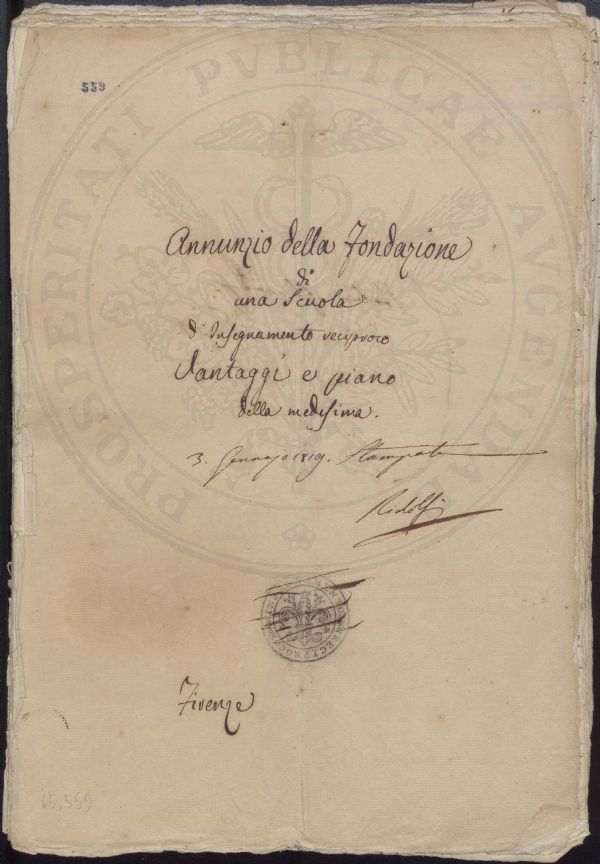 559
PROSPERITATI PVBLICAE AVGENDAE
Annunzio della Fondazione
di
una Scuola
d'Insegnamento reciproco
Vantaggi e piano
della medesima.
3. Gennajo 1819. Stampato
Ridolfi
RECIPROCO
Firenze
65,559